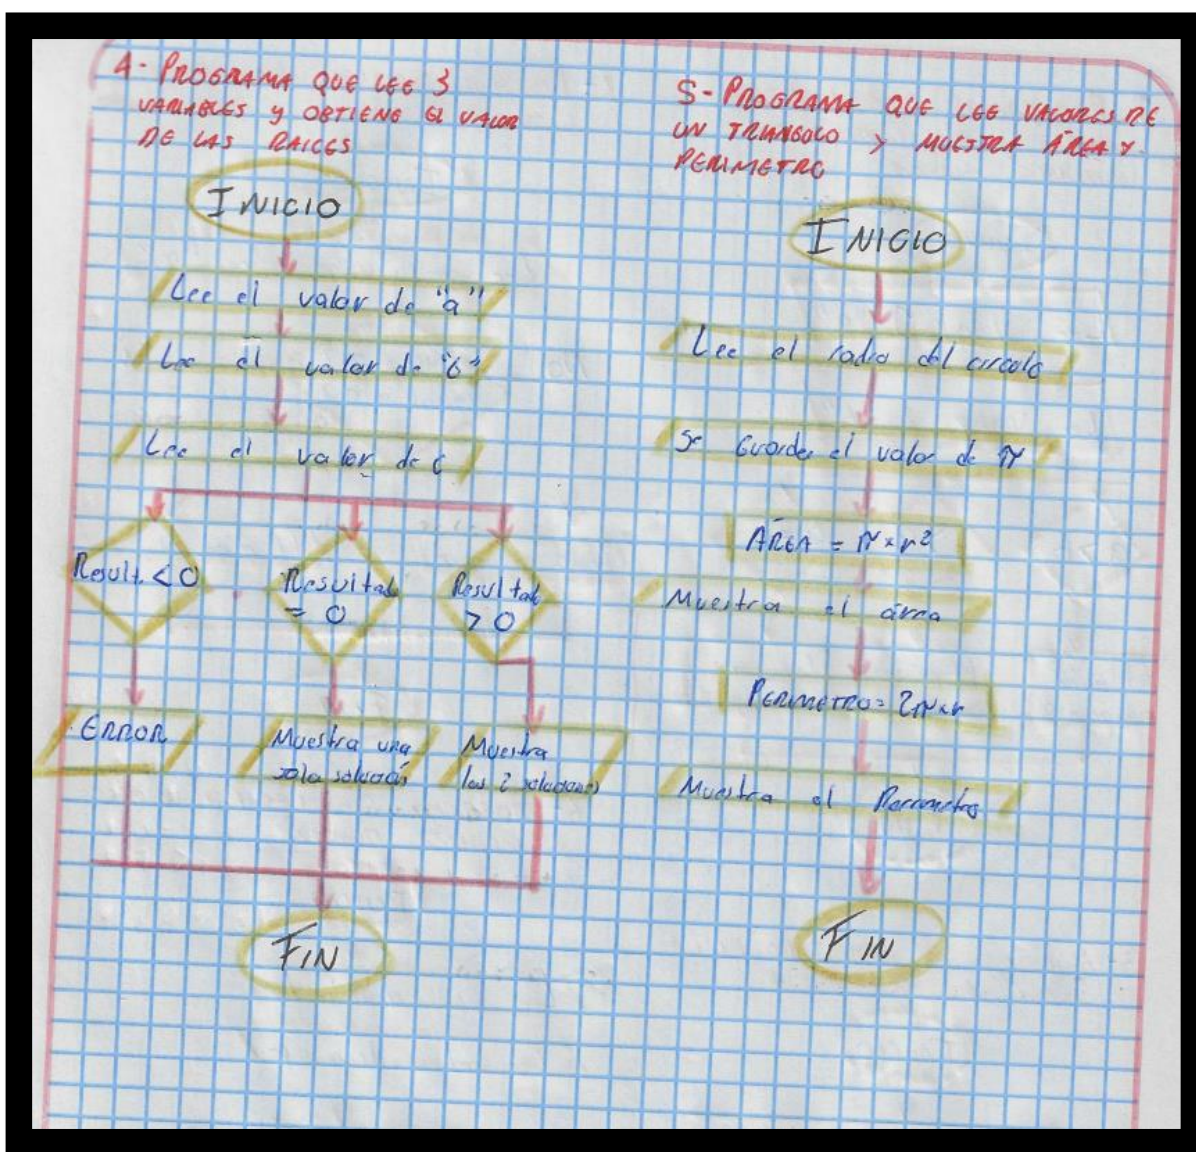 4- PROGRAMA QUE LEE 3
VARIABLES Y OBTIENE EL VALOR
DE LAS RAICES
INICIO
Lee el valor de "a"
Lee el valor de "b"
Lee el valor de c
Result. < 0
Resultado
= 0
Resultado
> 0
ERROR
Muestra una
sola solución
Muestra
las 2 soluciones
FIN
5- PROGRAMA QUE LEE VALORES DE
UN TRIANGOLO Y MUESTRA ÁREA Y
PERIMETRO
INICIO
Lee el radio del circulo
Se guarda el valor de π
ÁREA = π × r²
Muestra el área
PERIMETRO = 2π×r
Muestra el Perimetro
FIN